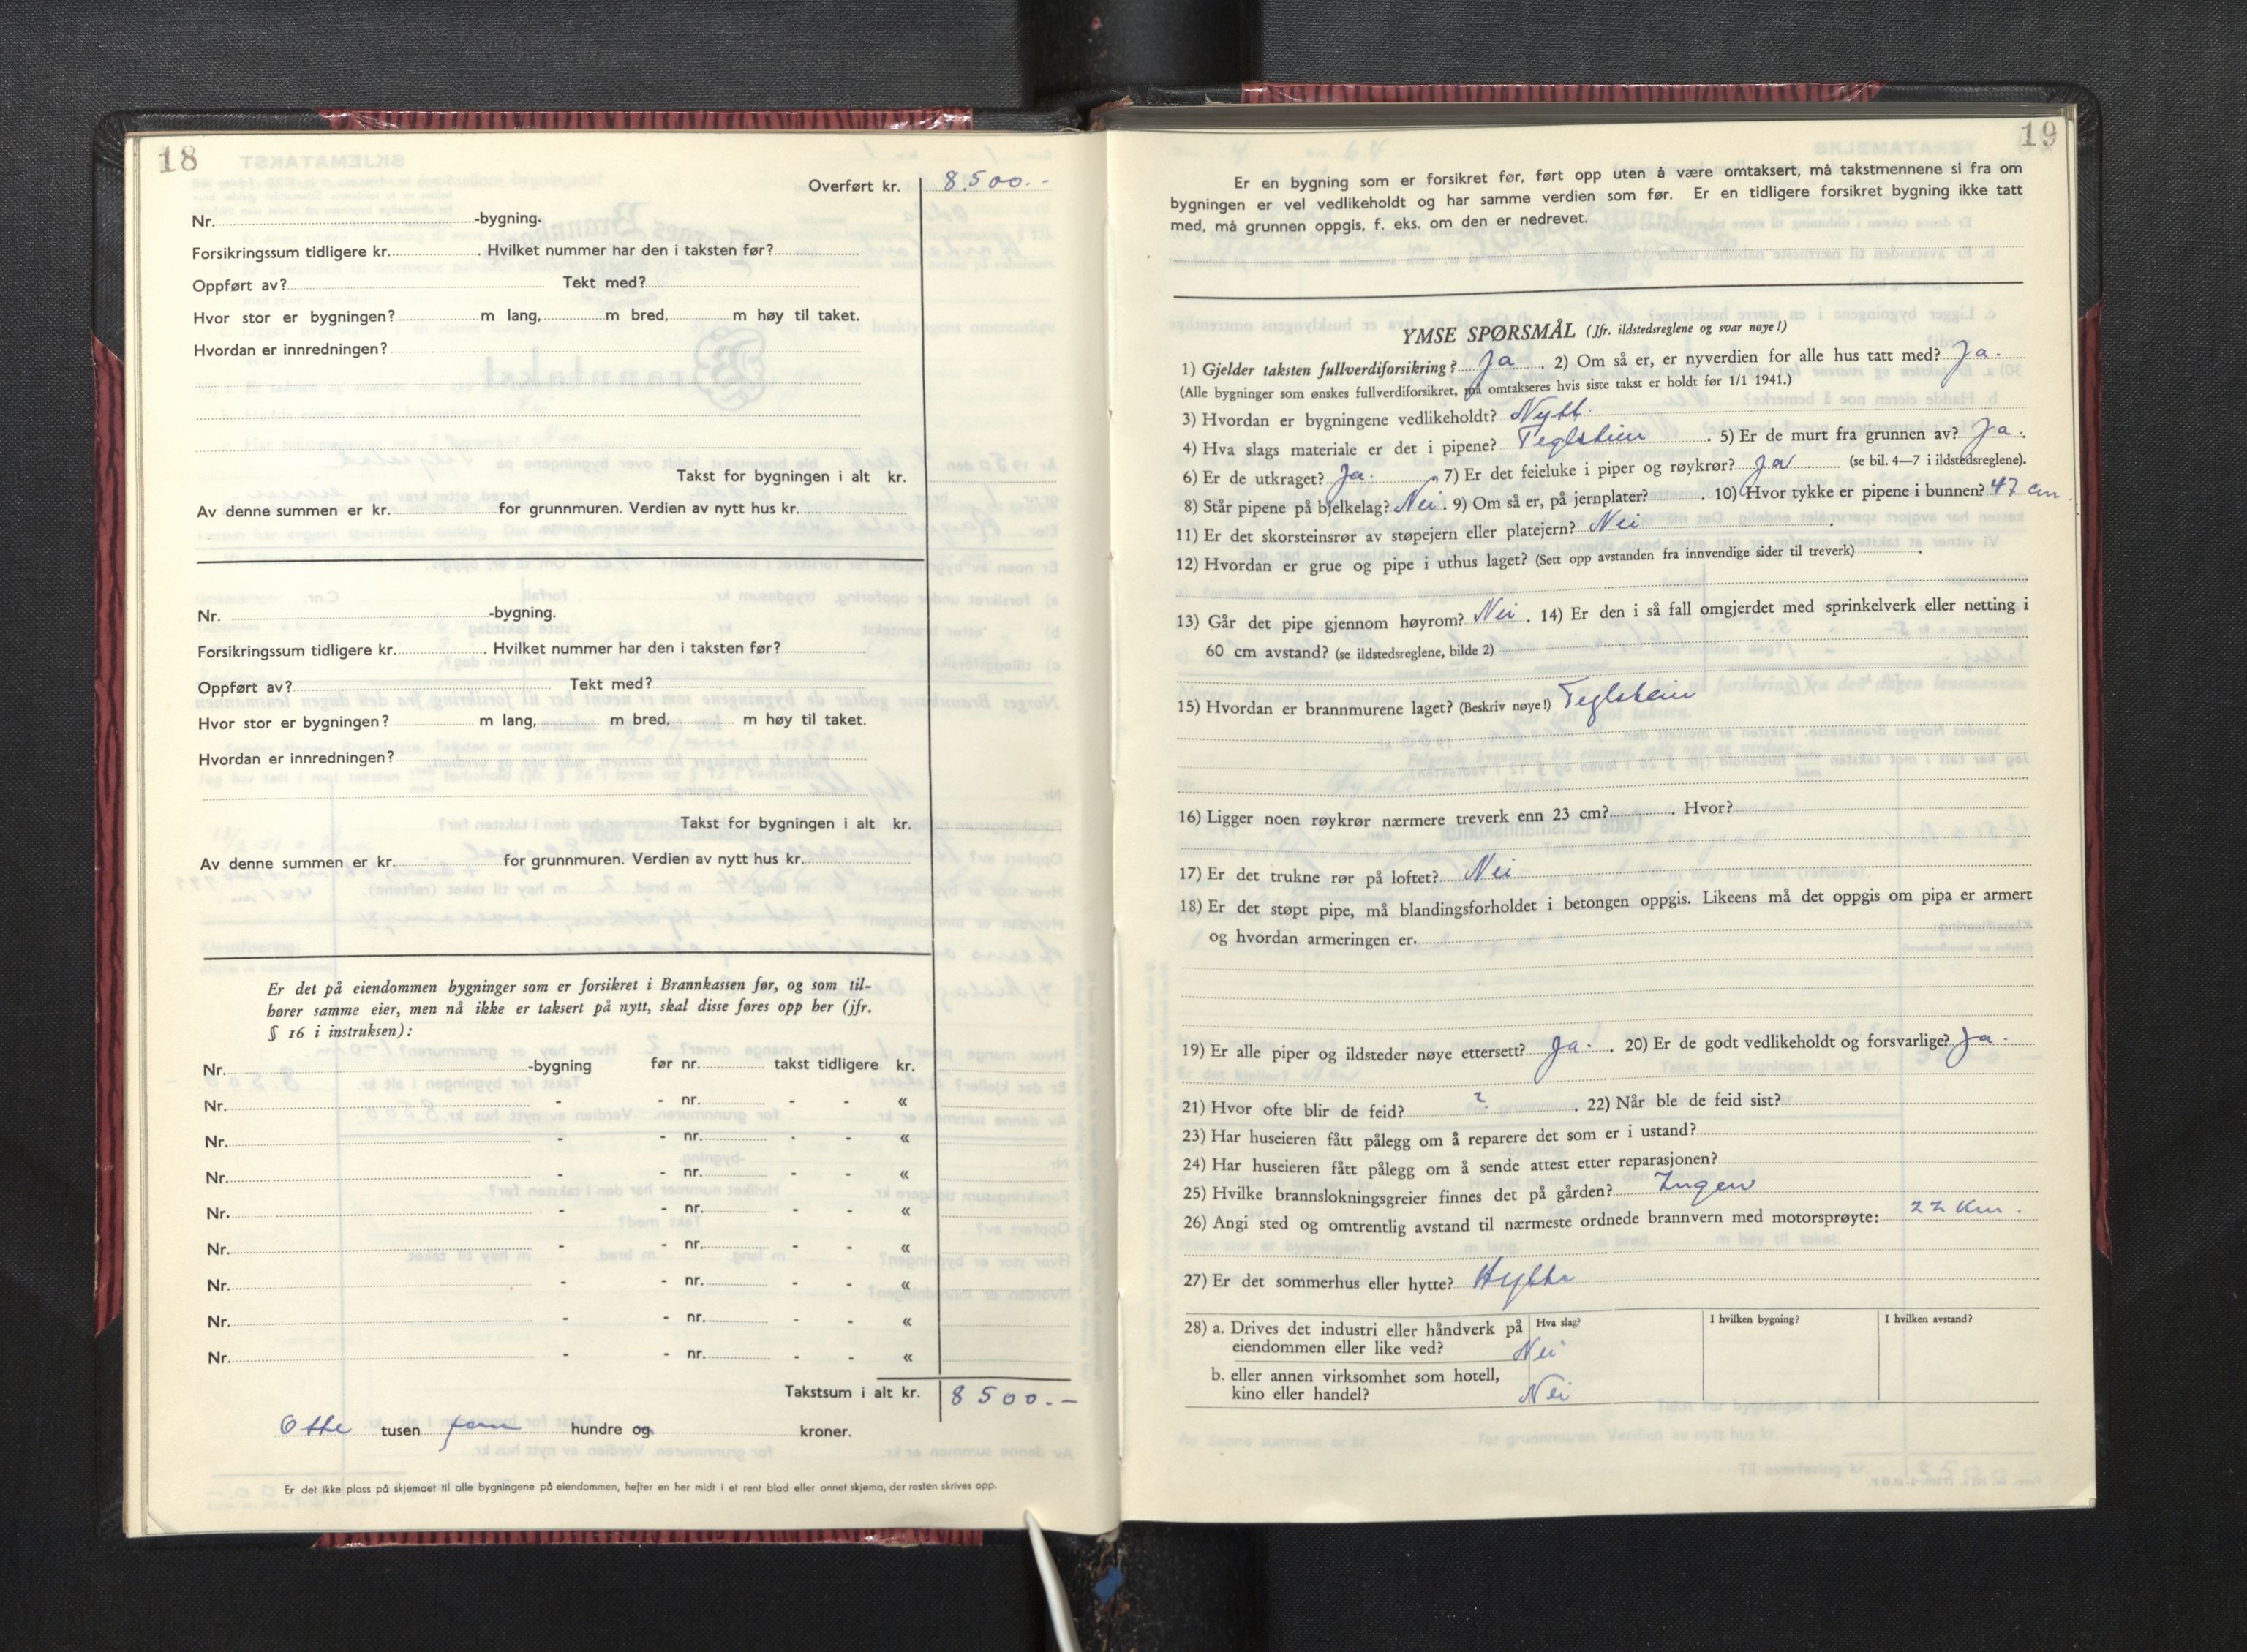 18
Overført kr. 8.500.-
Nr. -bygning.
Forsikringssum tidligere kr. . Hvilket nummer har den i taksten før?
Oppført av? Tekt med?
Hvor stor er bygningen? m lang, m bred, m høy til taket.
Hvordan er innredningen?
Takst for bygningen i alt kr.
Av denne summen er kr. for grunnmuren. Verdien av nytt hus kr.
Nr. -bygning.
Forsikringssum tidligere kr. . Hvilket nummer har den i taksten før?
Oppført av? Tekt med?
Hvor stor er bygningen? m lang, m bred, m høy til taket.
Hvordan er innredningen?
Takst for bygningen i alt kr.
Av denne summen er kr. for grunnmuren. Verdien av nytt hus kr.
Er det på eiendommen bygninger som er forsikret i Brannkassen før, og som til-
hører samme eier, men nå ikke er taksert på nytt, skal disse føres opp her (jfr.
§ 16 i instruksen):
Nr. -bygning før nr. takst tidligere kr.
Nr. - - nr. - - «
Nr. - - nr. - - «
Nr. - - nr. - - «
Nr. - - nr. - - «
Nr. - - nr. - - «
Nr. - - nr. - - «
Nr. - - nr. - - «
Nr. - - nr. - - «
Takstsum i alt kr. 8500.-
Otte tusen fem hundre og kroner.
Er det ikke plass på skjemaet til alle bygningene på eiendommen, hefter en her midt i et rent blad eller annet skjema, der resten skrives opp.
19
Er en bygning som er forsikret før, ført opp uten å være omtaksert, må takstmennene si fra om
bygningen er vel vedlikeholdt og har samme verdien som før. Er en tidligere forsikret bygning ikke tatt
med, må grunnen oppgis, f. eks. om den er nedrevet.
YMSE SPØRSMÅL (Jfr. ildstedsreglene og svar nøye!)
1) Gjelder taksten fullverdiforsikring? Ja . 2) Om så er, er nyverdien for alle hus tatt med? Ja.
(Alle bygninger som ønskes fullverdiforsikret, må omtakseres hvis siste takst er holdt før 1/1 1941.)
3) Hvordan er bygningene vedlikeholdt? Nytt.
4) Hva slags materiale er det i pipene? Teglstein . 5) Er de murt fra grunnen av? Ja.
6) Er de utkraget? Ja. 7) Er det feieluke i piper og røykrør? Ja (se bil. 4—7 i ildstedsreglene).
8) Står pipene på bjelkelag? Nei . 9) Om så er, på jernplater? . 10) Hvor tykke er pipene i bunnen? 47 cm.
11) Er det skorsteinsrør av støpejern eller platejern? Nei .
12) Hvordan er grue og pipe i uthus laget? (Sett opp avstanden fra innvendige sider til treverk) .
13) Går det pipe gjennom høyrom? Nei . 14) Er den i så fall omgjerdet med sprinkelverk eller netting i
60 cm avstand? (se ildstedsreglene, bilde 2)
15) Hvordan er brannmurene laget? (Beskriv nøye!) Teglstein
16) Ligger noen røykrør nærmere treverk enn 23 cm? . Hvor?
17) Er det trukne rør på loftet? Nei
18) Er det støpt pipe, må blandingsforholdet i betongen oppgis. Likeens må det oppgis om pipa er armert
og hvordan armeringen er.
19) Er alle piper og ildsteder nøye ettersett? Ja. . 20) Er de godt vedlikeholdt og forsvarlige? Ja.
21) Hvor ofte blir de feid? ? . 22) Når ble de feid sist?
23) Har huseieren fått pålegg om å reparere det som er i ustand?
24) Har huseieren fått pålegg om å sende attest etter reparasjonen?
25) Hvilke brannslokningsgreier finnes det på gården? Ingen
26) Angi sted og omtrentlig avstand til nærmeste ordnede brannvern med motorsprøyte: 22 Km.
27) Er det sommerhus eller hytte? Hytte
28) a. Drives det industri eller håndverk på Hva slag? I hvilken bygning? I hvilken avstand?
eiendommen eller like ved? Nei
b. eller annen virksomhet som hotell,
kino eller handel? Nei